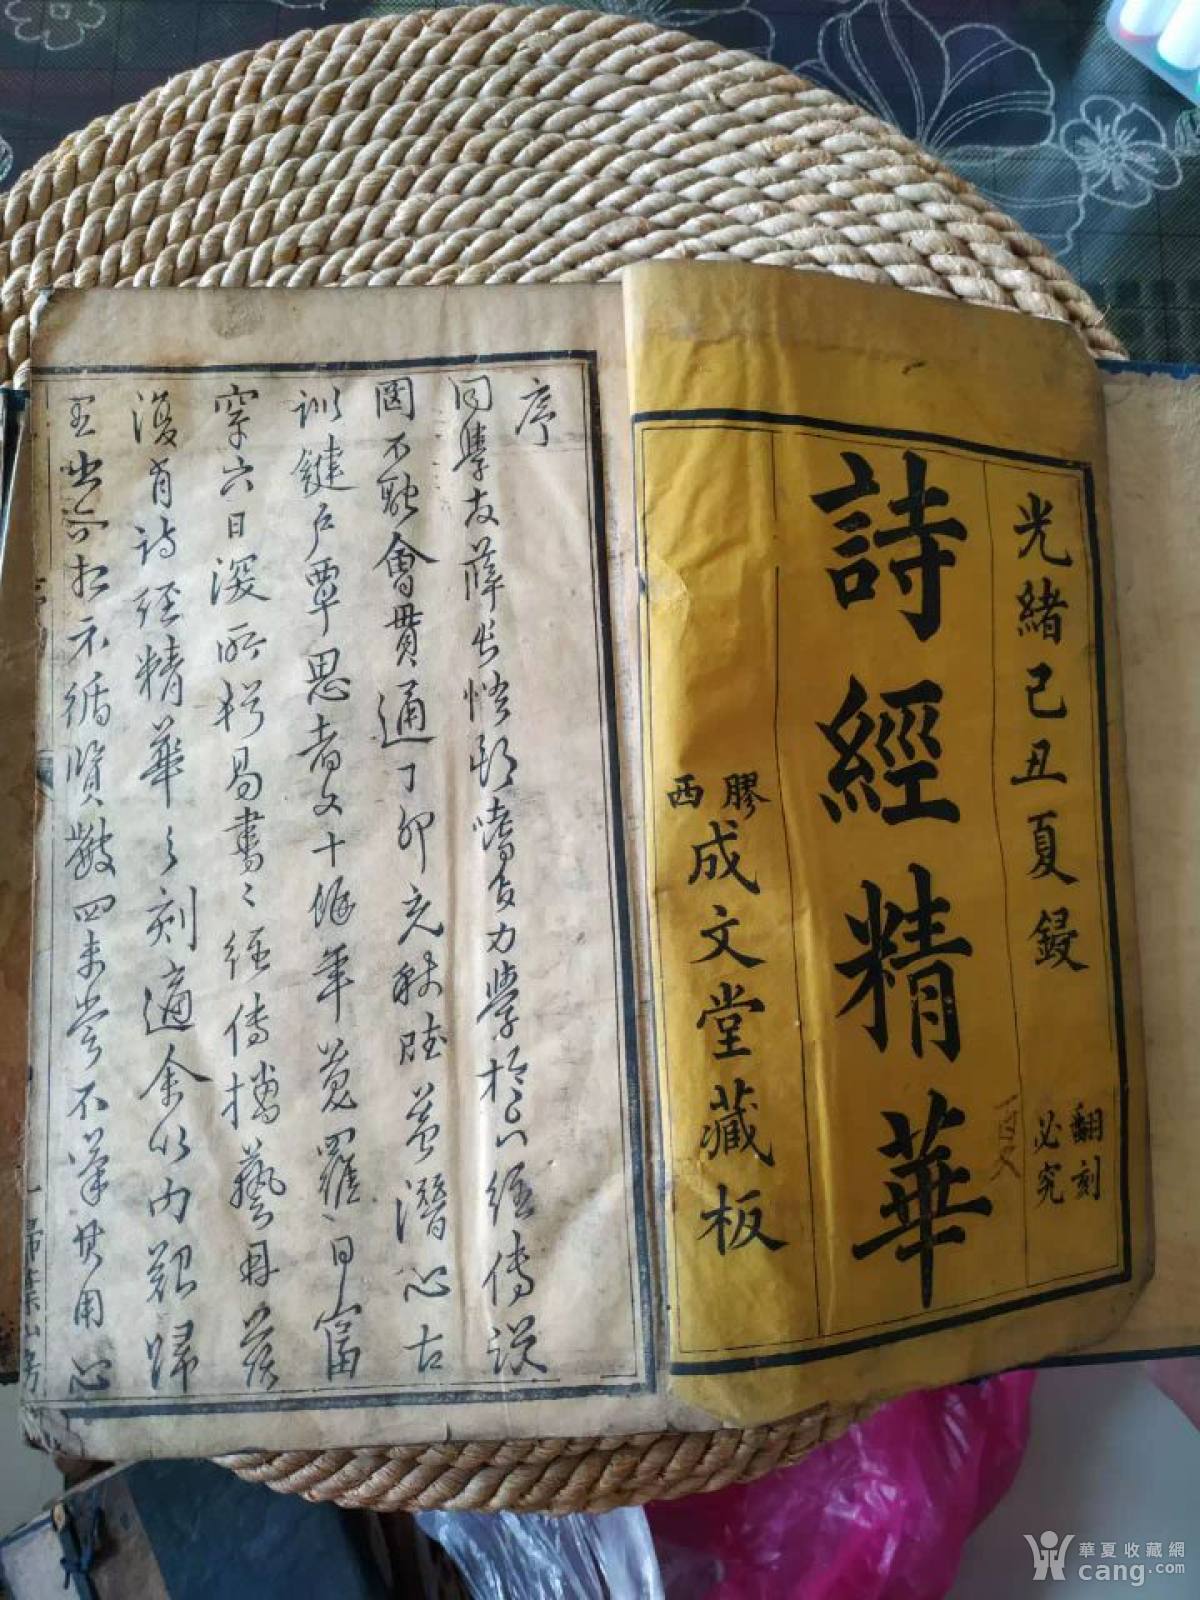 光緒己丑夏鋟
翻刻
必究
詩經精華
膠西
成文堂藏板
序
同學友薛君悟邨嗜古力學於六經傳說
罔不融會貫通丁卯充秋賦益潛心古
訓鍵戶覃思者又十餘年蒐羅日富
穿穴日深所輯易書二經傳播藝茲
復有詩經精華之刻適余以內艱歸
里出以相示循覽數四未嘗不嘆其用心
華夏收藏網
cang.com